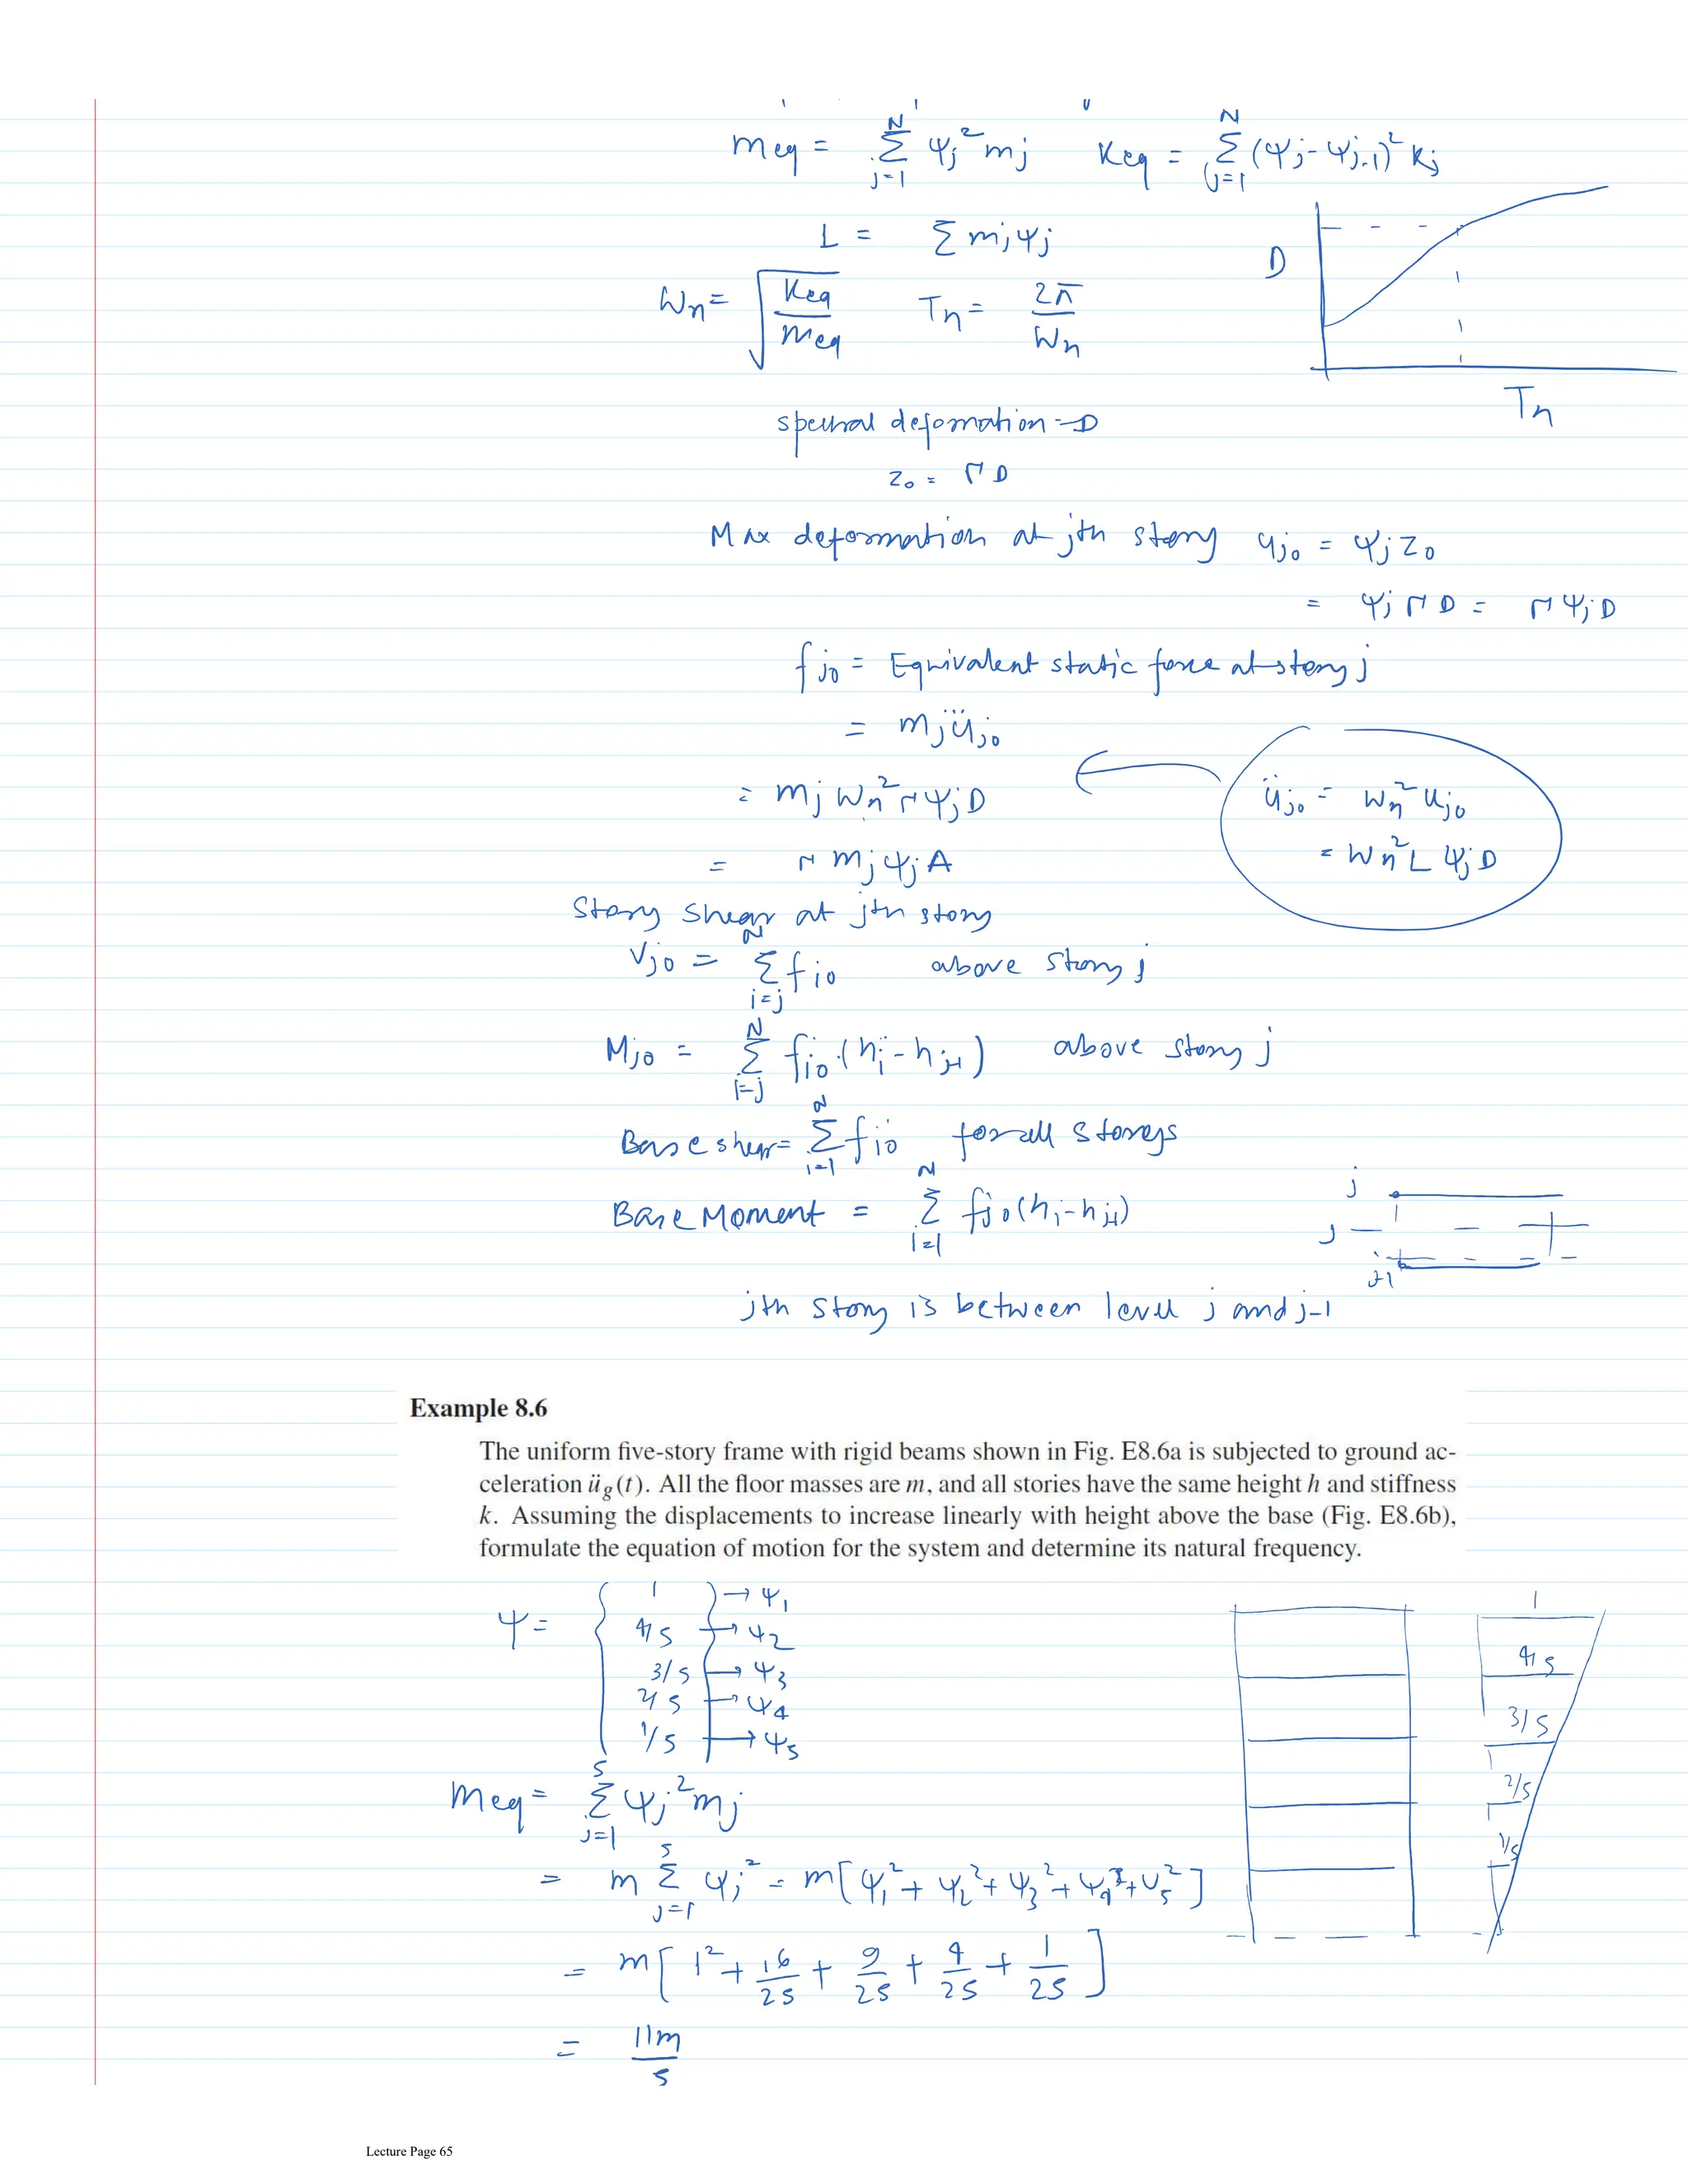 meq = Σ_{j=1}^{N} ψj² mj   Keq = Σ_{j=1}^{N} (ψj - ψj-1)² Kj
L = Σ mj ψj
D
Wn = √(Keq / meq)   Tn = 2π / Wn
Tn
spectral deformation = D
z₀ = Γ D
Max deformation at jth story ujo = ψj z₀
= ψj Γ D = Γ ψj D
fjo = Equivalent static force at story j
= mj üjo
= mj Wn² Γ ψj D
üjo = Wn² ujo
= Wn² L ψj D
= Γ mj ψj A
Story shear at jth story
Vjo = Σ_{i=j}^{N} fio   above story j
Mjo = Σ_{i=j}^{N} fio (hi - hj-1)   above story j
Base shear = Σ_{i=1}^{N} fio   for all storeys
Base Moment = Σ_{i=1}^{N} fjo (hi - hj-1)
j
j
j-1
jth story is between level j and j-1
Example 8.6
The uniform five-story frame with rigid beams shown in Fig. E8.6a is subjected to ground ac-
celeration üg(t). All the floor masses are m, and all stories have the same height h and stiffness
k. Assuming the displacements to increase linearly with height above the base (Fig. E8.6b),
formulate the equation of motion for the system and determine its natural frequency.
ψ = { 1 } → ψ1
4/5 → ψ2
3/5 → ψ3
2/5 → ψ4
1/5 → ψ5
1
4/5
3/5
2/5
1/5
meq = Σ_{j=1}^{5} ψj² mj
= m Σ_{j=1}^{5} ψj² = m[ψ1² + ψ2² + ψ3² + ψ4² + ψ5²]
= m[1² + 16/25 + 9/25 + 4/25 + 1/25]
= 11m / 5
Lecture Page 65